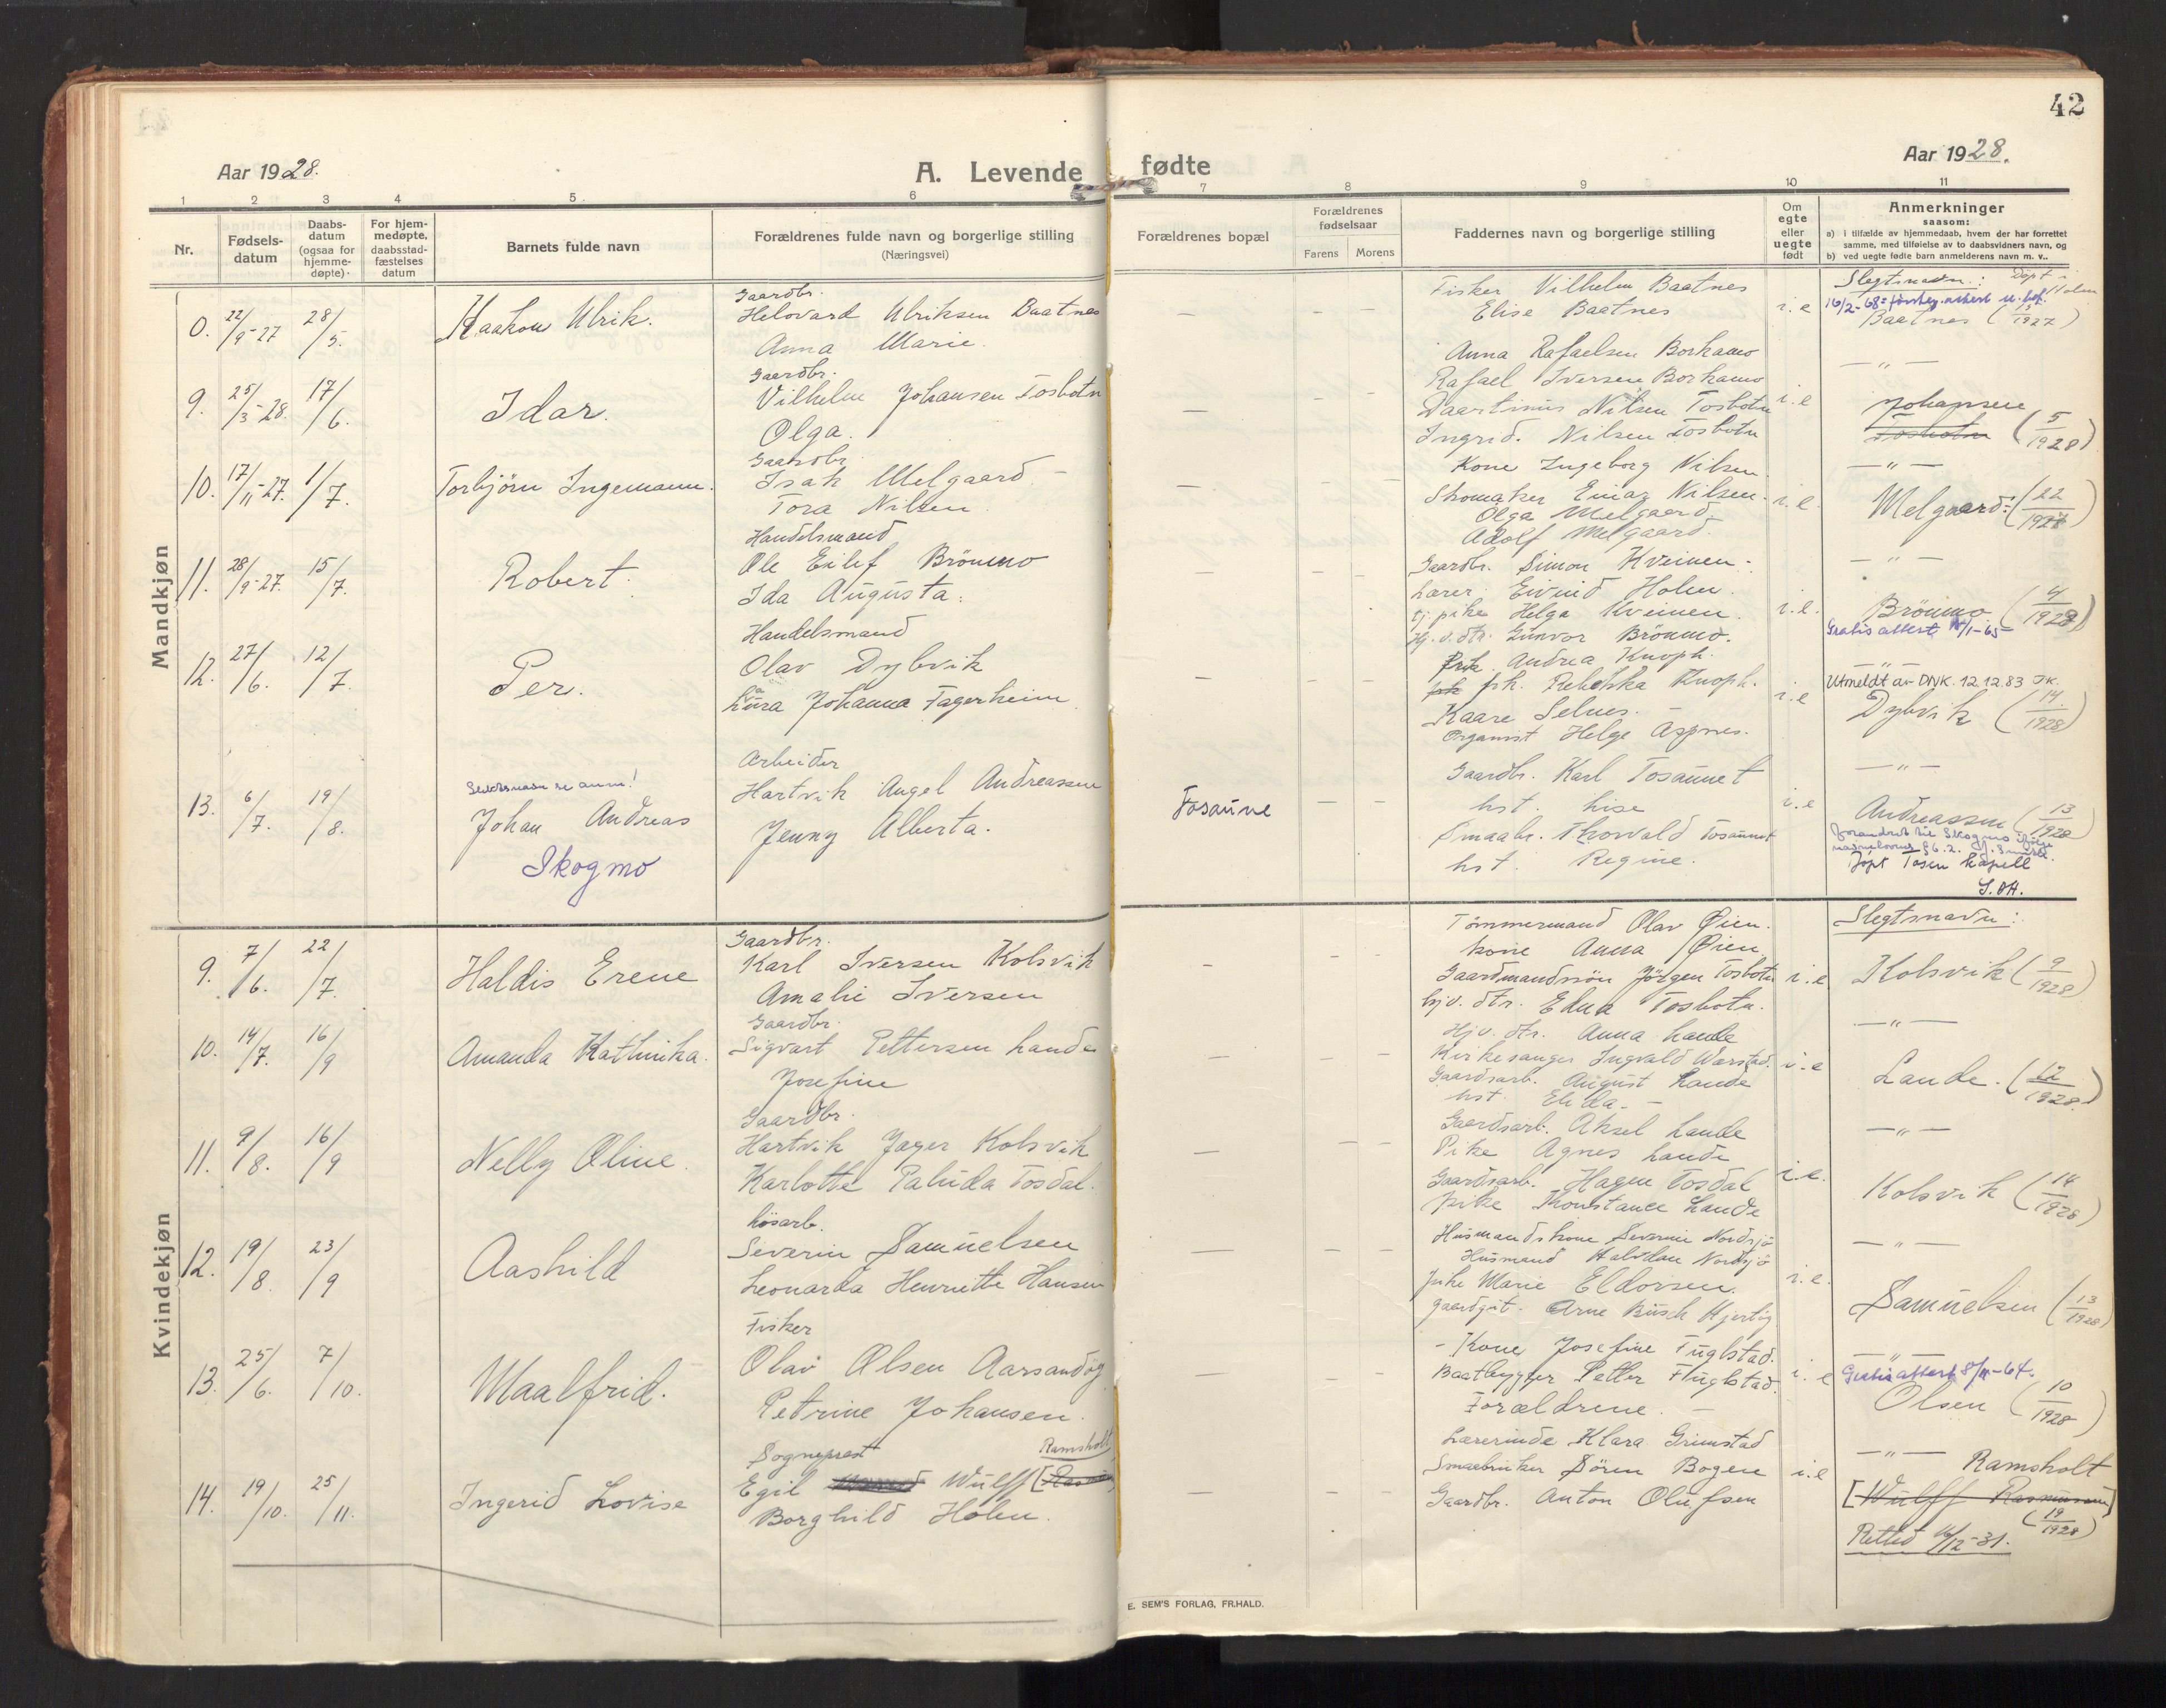 42
Aar 1928.
A. Levende fødte
Aar 1928.
1 2 3 4 5 6 7 8 9 10 11
Nr.
Fødsels-
datum
Daabs-
datum
(ogsaa for
hjemme-
døpte)
For hjem-
medøpte,
daabsstad-
fæstelses
datum
Barnets fulde navn
Forældrenes fulde navn og borgerlige stilling
(Næringsvei)
Forældrenes bopæl
Forældrenes
fødselsaar
Farens Morens
Faddernes navn og borgerlige stilling
Om
egte
eller
uegte
født
Anmerkninger
saasom:
a) i tilfælde av hjemmedaab, hvem der har forrettet
samme, med tilføielse av to daabsvidners navn, og
b) ved uegte fødte barn anmelderens navn m. v..
Mandkjøn
0. 22/9-27 28/5. Haakon Ulrik.
Gaardbr.
Helovard Ulriksen Baatnes
Anna Marie.
— — —
Fisker Vilhelm Baatnes
Elise Baatnes
Anna Rafaelsen Borkamo
Rafael Iversen Borkamo
i. e
Slegtsnavn: Døpt i
16/2-68
Baatnes (13/1927)
9. 25/3-28. 17/6. Idar.
Gaardbr.
Vilhelm Johansen Tosbotn
Olga.
— — —
Daartinus Nilsen Tosbotn
Ingrid. Nilsen Tosbotn
i. e
— " —
Johansen
Tosbotn (5/1928)
10. 17/11-27. 1/7. Torbjörn Ingemann.
Gaardbr.
Isak Melgaard
Tora Nilsen
— — —
Kone Ingeborg Nilsen
Skomaker Einar Nilsen.
Olga Melgaard.
Adolf Melgaard.
i. e.
— " —
Melgaard: (22/1927)
11. 28/9-27. 15/7. Robert.
Handelsmand
Ole Eilef Brönmo
Ida Augusta.
— — —
Gaardbr. Simon Kveinen.
Lærer Eivind Holen.
tj. pike Helga Kveinen.
Hj. v. dtr. Gunvor Brönmo.
i. e.
— " —
Brönmo (4/1928)
Gratis attest /1-65
12. 27/6. 12/7. Per.
Handelsmand
Olav Dybvik
Laura Johanna Fagerheim
— — —
Frk. Andrea Knoph.
frk. Rebekka Knoph.
Kaare Selnes.
Organist Helge Aspnes.
i. e
— " —
Utmeldt av DNK. 12.12.83
Dybvik (14/1928)
13. 6/7. 19/8. Johan Andreas
Skogmo
Arbeider
Hartvik Angel Andreassen
Jenny Alberta.
Tosaune — —
Gaardbr. Karl Tosaunet
hst. Lise
Smaabr. Thorvald Tosaunet
hst. Regine.
i. e
— " —
Andreassen (13/1928)
forandret til Skogmo ifølge
Døpt Tosen kapell
S. OH.
Kvindekjøn
9. 7/6. 22/7. Haldis Erene
Gaardbr.
Karl Iversen Kolsvik
Amalie Iversen
— — —
Tömmermand Olav Øien.
kone Anna Øien
Gaardmandssön Jörgen Tosbotn
hjv. dtr. Edna Tosbotn.
i. e
Slegtsnavn:
Kolsvik (9/1928)
10. 14/7. 16/9 Amanda Kathinka.
Gaardbr.
Sigvart Pettersen Lande
Josefine
— — —
Hjv. dtr. Anna Lande
Kirkesanger Ingvald Warstad.
Gaardsarb. August Lande
hst. Elida.
i. e
— " —
Lande. (12/1928)
11. 9/8. 16/9 Nelly Oline.
Gaardbr.
Hartvik Jager Kolsvik
Karlotte Paluda Tosdal.
— — —
Gaardsarb. Aksel Lande
Pike Agnes Lande
Gaardsarb. Hagen Tosdal
pike Konstance Lande
i. e.
— " —
Kolsvik (14/1928)
12. 19/8. 23/9 Aashild
Lösarb.
Severin Samuelsen
Leonarda Henriette Hansen
— — —
Husmandskone Severine Nordsjö
Husmand Halvdan Nordsjö
pike Marie Eldorsen.
gaardgut. Arne Busch Hjertig
i. e.
— " —
Samuelsen (13/1928)
13. 25/6. 7/10. Maalfrid.
Fisker
Olav Olsen Aarsandög
Petrine Johansen.
— — —
Kone Josefine Fuglstad.
Baatbygger Petter Fuglstad.
Forældrene.
i. e
— " —
Gratis attest 8/11-64.
Olsen (10/1928)
14. 19/10. 25/11. Ingerid Lovise
Sogneprest Ramsholt
Egil Wulff
Borghild Holen.
— — —
Lærerinde Klara Grimstad
Smaabruker Sören Bogen
Gaardbr. Anton Olufsen
i. e
— " — Ramsholt
[Wulff Rasmussen]
(19/1928)
Rettet /12-31.
E. SEM'S FORLAG, FR.HALD.